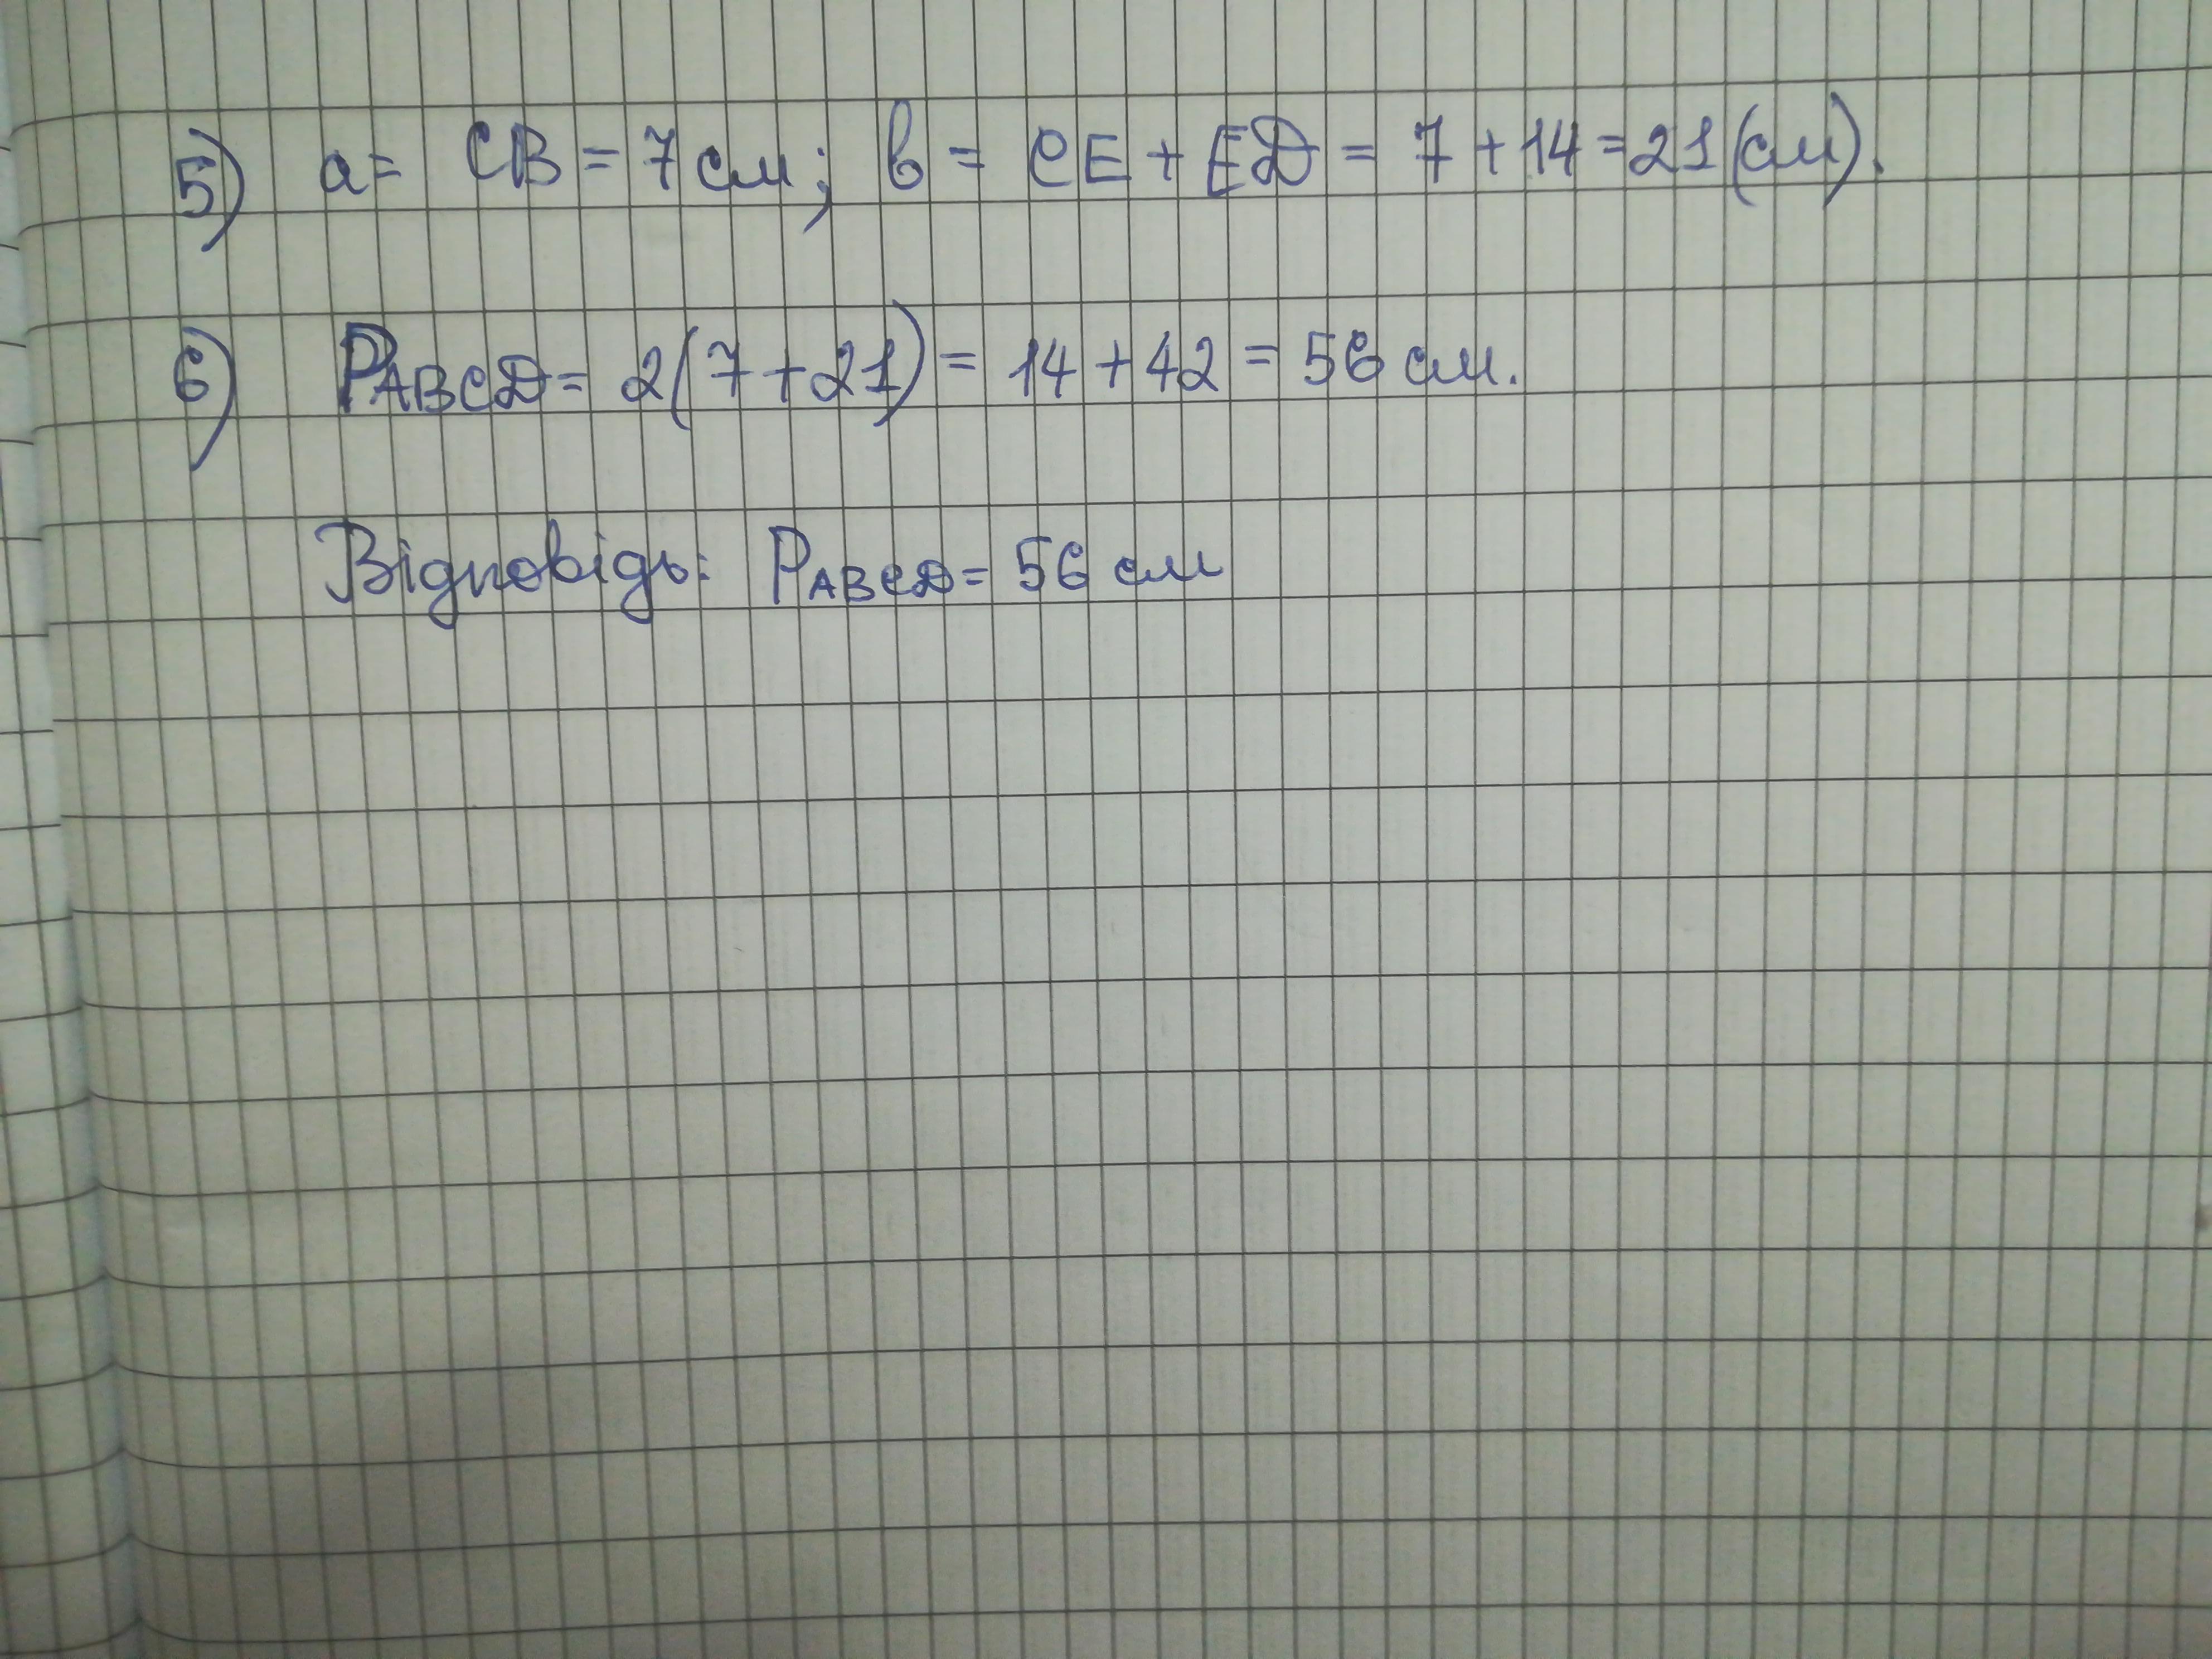 5) a = CB = 7 см; b = CE + ED = 7 + 14 = 21 (см).
6) PABCD = 2(7 + 21) = 14 + 42 = 56 см.
Відповідь: PABCD = 56 см